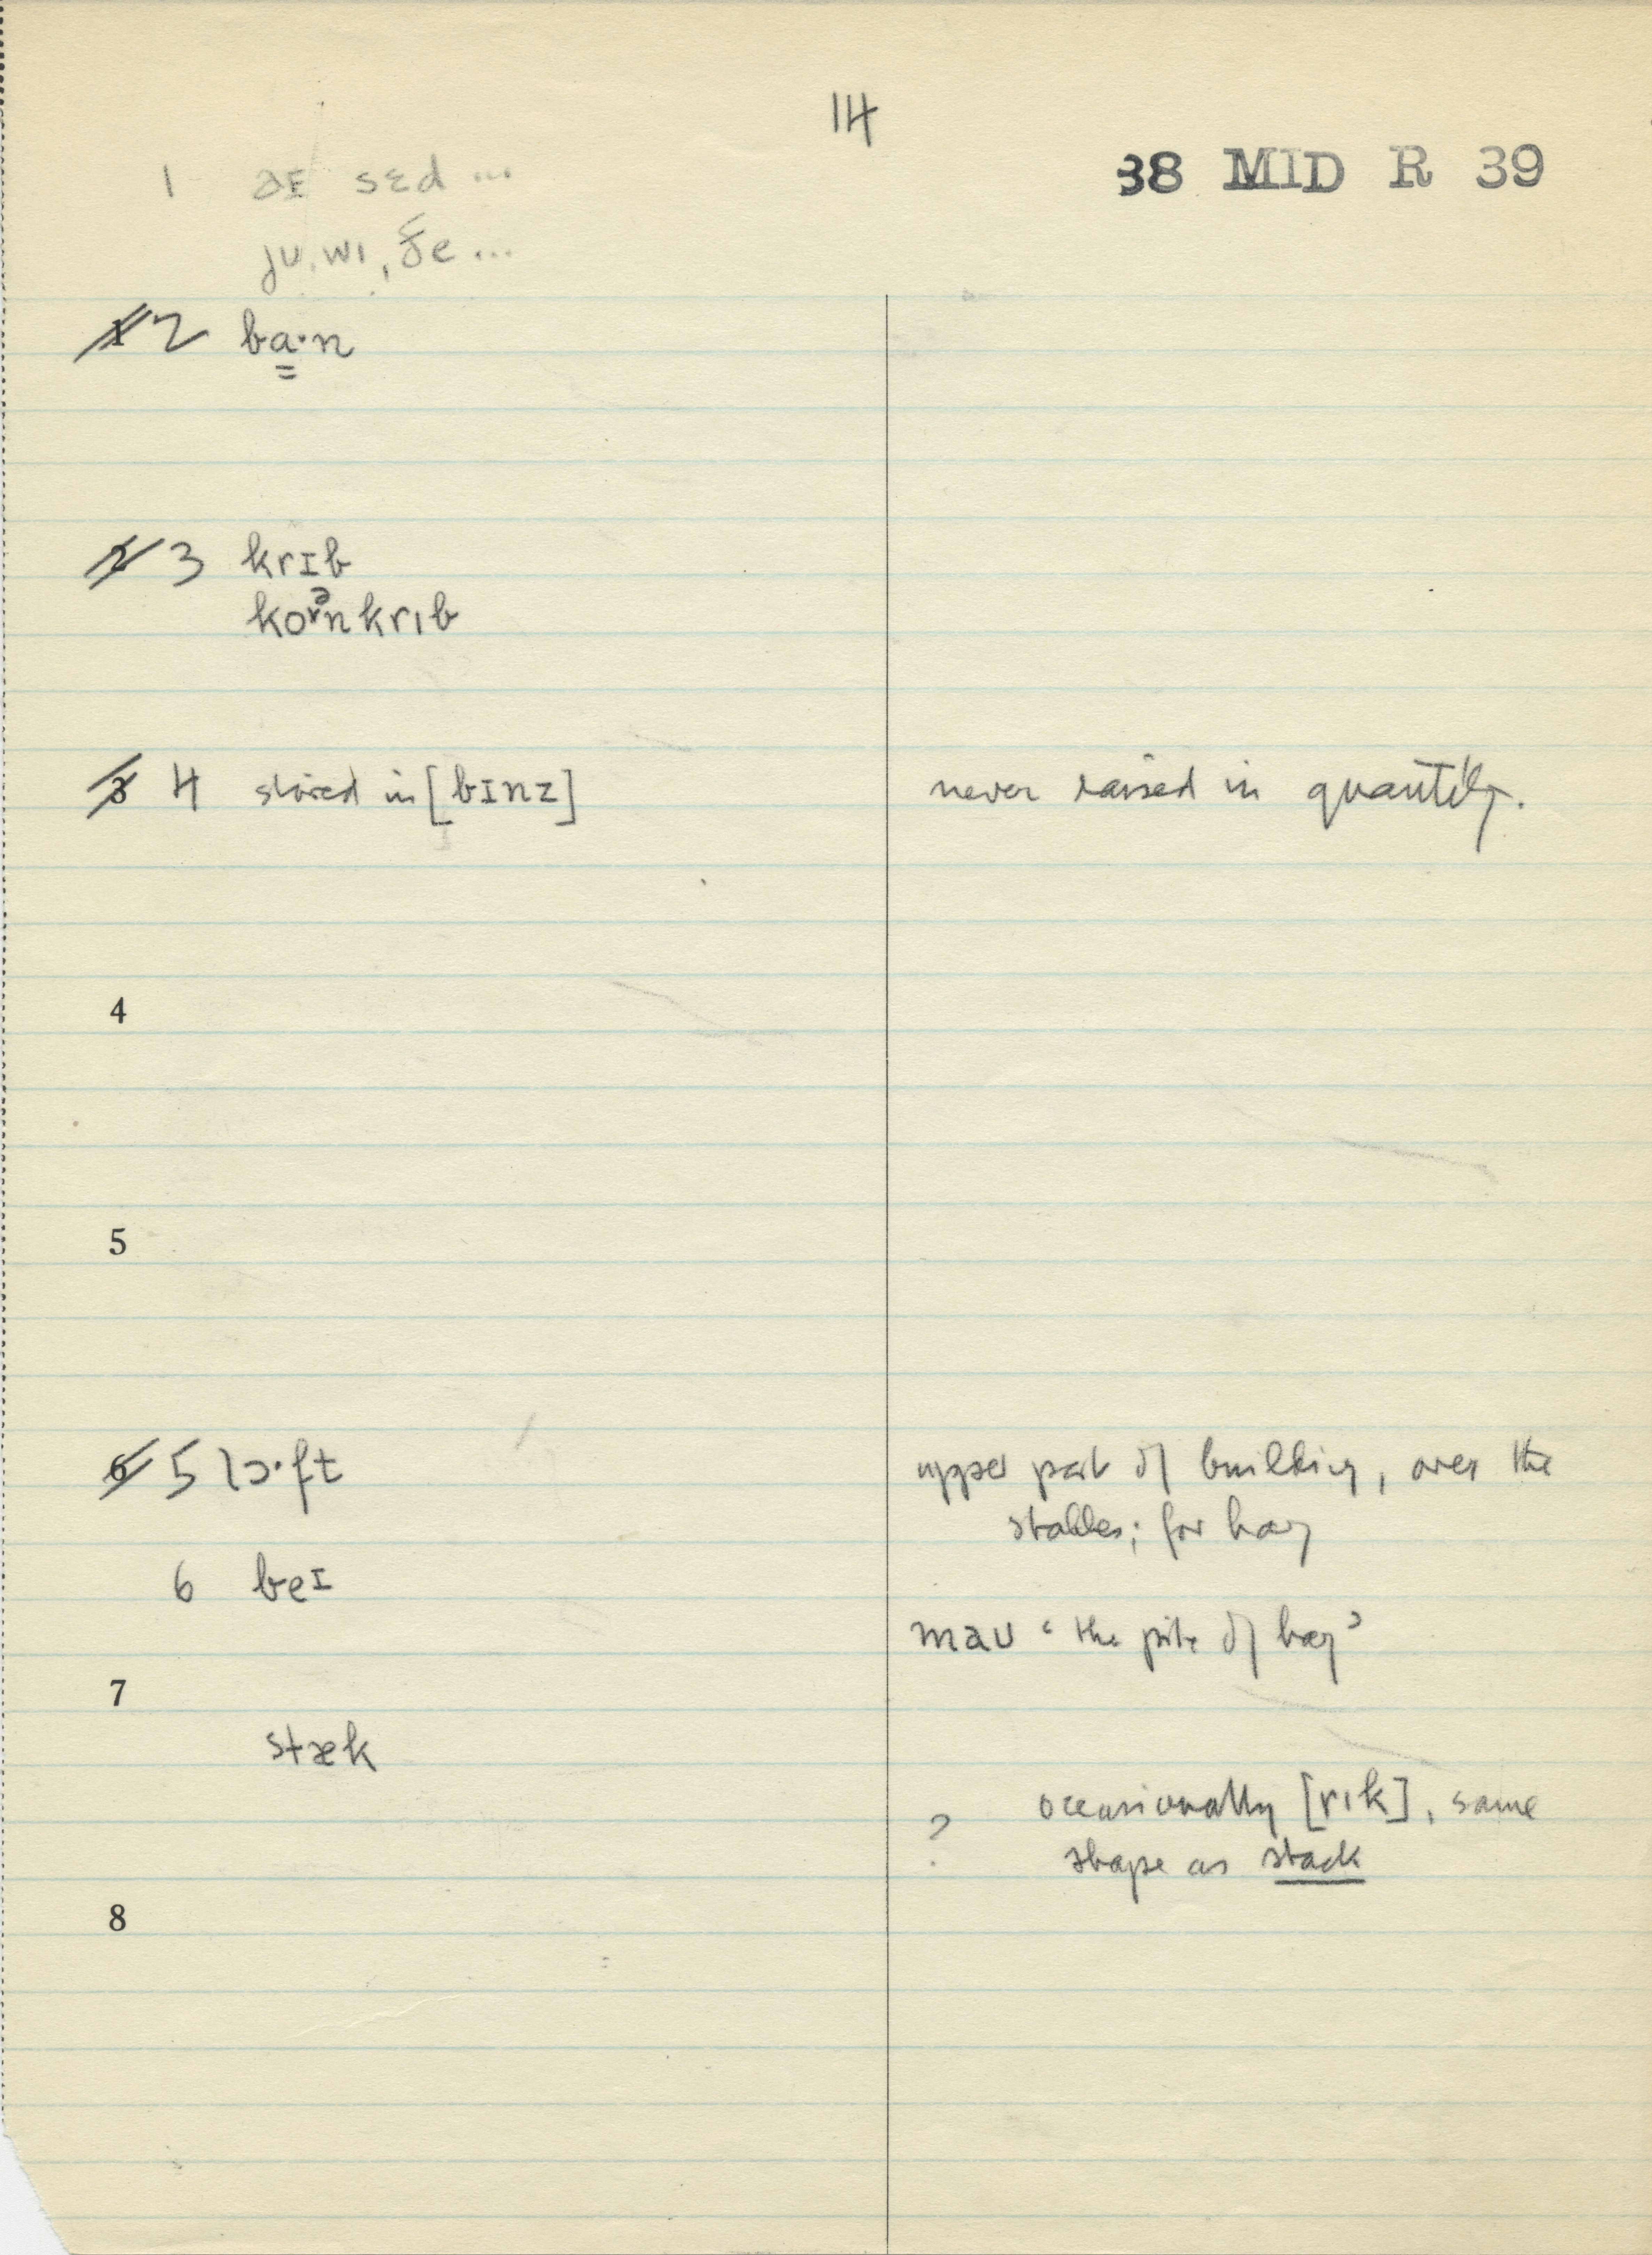 14
38 MID R 39
1 aɛ sɛd ...
ju, wɪ, ðe ...
1 2 ba·n
2 3 krɪb
koərn krɪb
3 4 stored in [bɪnz]
never raised in quantity.
4
5
6 5 lɔ·ft
upper part of building, over the
stables; for hay
6 beɪ
maʊ ‘the pile of hay’
7
stæk
? occasionally [rɪk], same
shape as stack
8